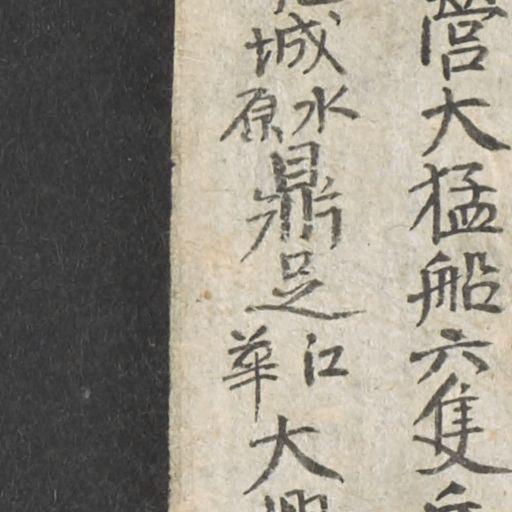 營大猛船六隻
城水原鼎足江華大興